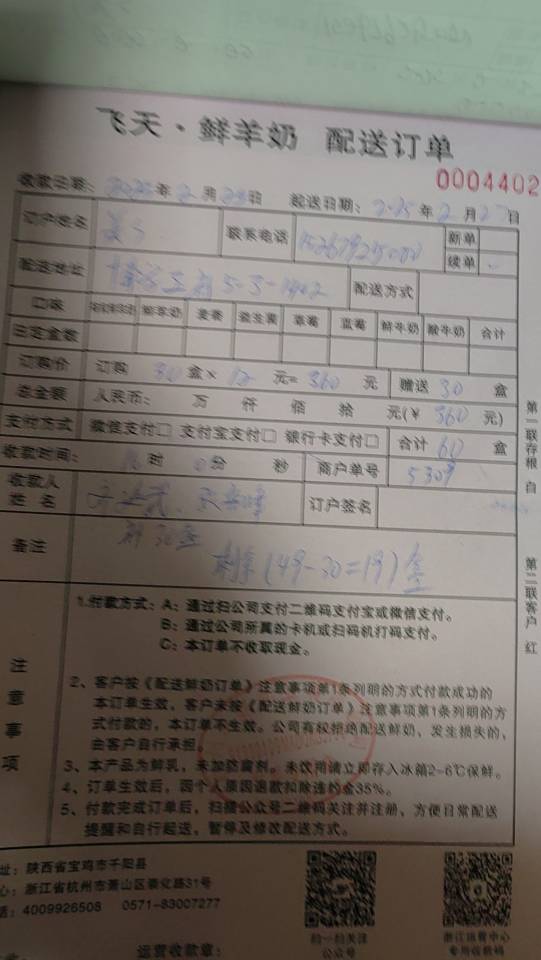 飞天·鲜羊奶 配送订单
0004402
收款日期: 2025年2月23日 起送日期: 2025年2月27日
订户姓名 联系电话 新单
续单
配送地址 5-3-1402 配送方式
口味 鲜羊奶 麦香 益生菌 草莓 蓝莓 鲜牛奶 酸牛奶 合计
日定盒数
订购价 订购 30 盒× 12 元= 360 元 赠送 30 盒
总金额 人民币: 万 仟 佰 拾 元(¥ 360 元)
支付方式 微信支付□ 支付宝支付□ 银行卡支付□ 合计 60 盒
收款时间: 时 0分 秒 商户单号 5309
收款人姓名 订户签名
备注 补30盒
剩余(49-30=19)盒
第一联存根 白
第二联客户 红
注意事项
1.付款方式: A: 通过扫公司支付二维码支付宝或微信支付。
B: 通过公司所属的卡机或扫码机打码支付。
C: 本订单不收取现金。
2、客户按《配送鲜奶订单》注意事项第1条列明的方式付款成功的
本订单生效，客户未按《配送鲜奶订单》注意事项第1条列明的方
式付款的，本订单不生效。公司有权拒绝配送鲜奶、发生损失的，
由客户自行承担。
3、本产品为鲜乳，未加防腐剂。未饮用请立即存入冰箱2-6℃保鲜。
4、订单生效后，因个人原因退款扣除违约金35%。
5、付款完成订单后，扫描公众号二维码关注并注册，方便日常配送
提醒和自行起送，暂停及修改配送方式。
址: 陕西省宝鸡市千阳县
心: 浙江省杭州市萧山区崇化路31号
话: 4009926508 0571-83007277
扫一扫关注
公众号
浙江运营中心
专用收款码
运营收款章: